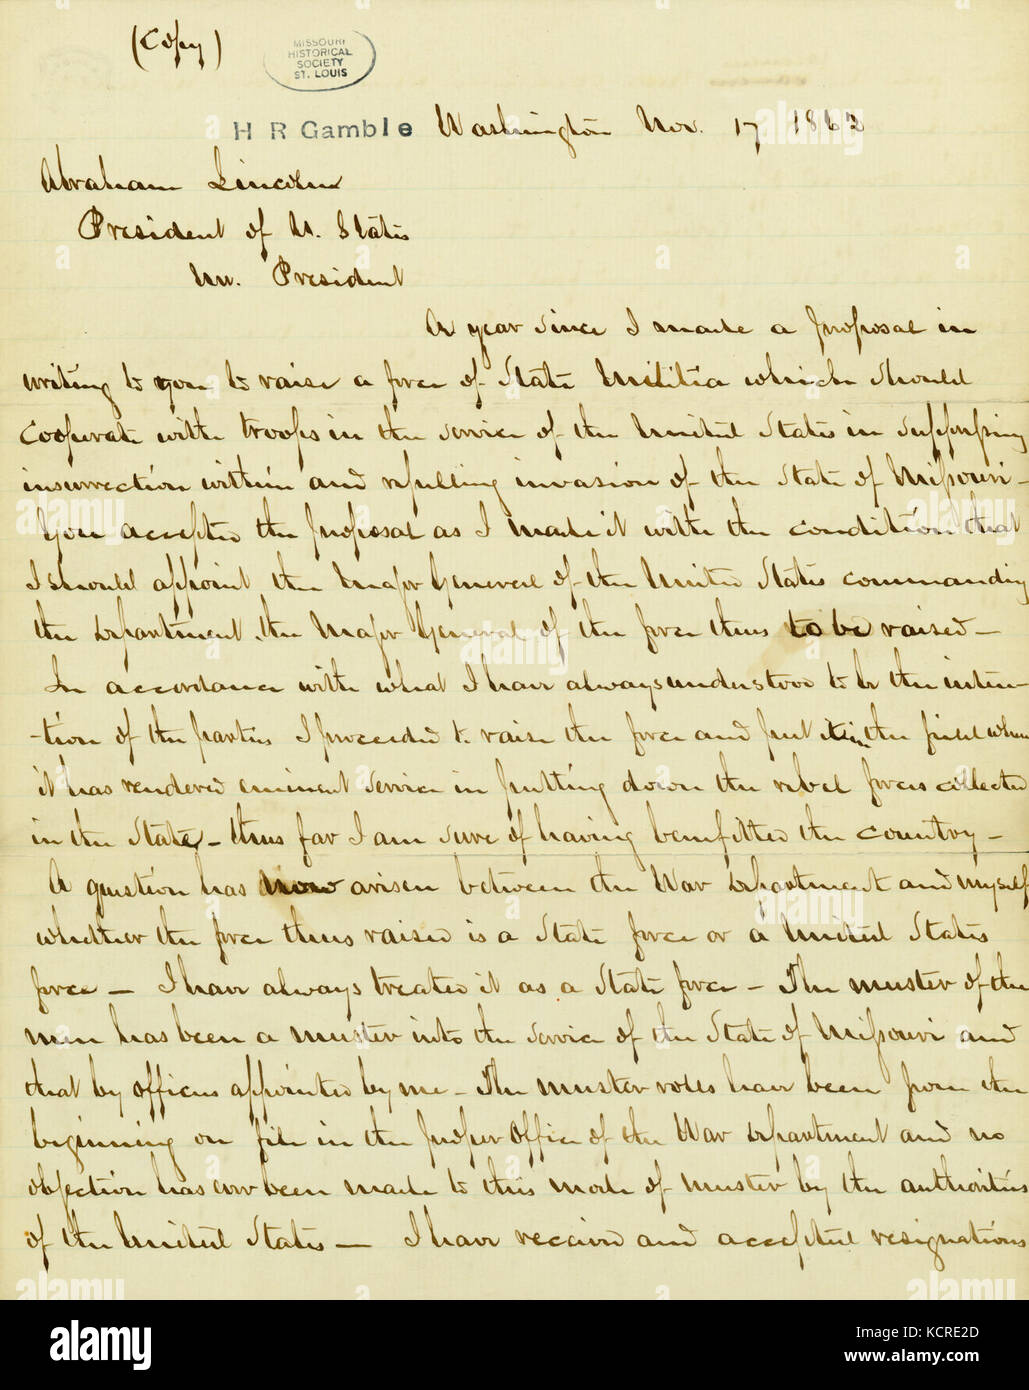 (Copy)
MISSOURI
HISTORICAL
SOCIETY
ST. LOUIS
H R Gamble Washington Nov. 17 1862
Abraham Lincoln
President of U. States
Mr. President
A year since I made a proposal in
writing to you to raise a force of State Militia which should
cooperate with troops in the service of the United States in suppressing
insurrection within and repelling invasion of the State of Missouri -
You accepted the proposal as I made it with the condition that
I should appoint the Major General of the United States commanding
the Department, the Major General of the force thus to be raised -
In accordance with what I have always understood to be the inten-
-tion of the parties I proceeded to raise the force and put it in the field where
it has rendered eminent service in putting down the rebel forces collected
in the State - thus far I am sure of having benefitted the country -
A question has now arisen between the War Department and myself
whether the force thus raised is a State force or a United States
force - I have always treated it as a State force - The muster of the
men has been a muster into the service of the State of Missouri and
that by officers appointed by me - The muster rolls have been from the
beginning on file in the proper office of the War Department and no
objection has ever been made to this mode of muster by the authorities
of the United States - I have received and accepted resignations
alamy
Image ID: KCRE2D
www.alamy.com